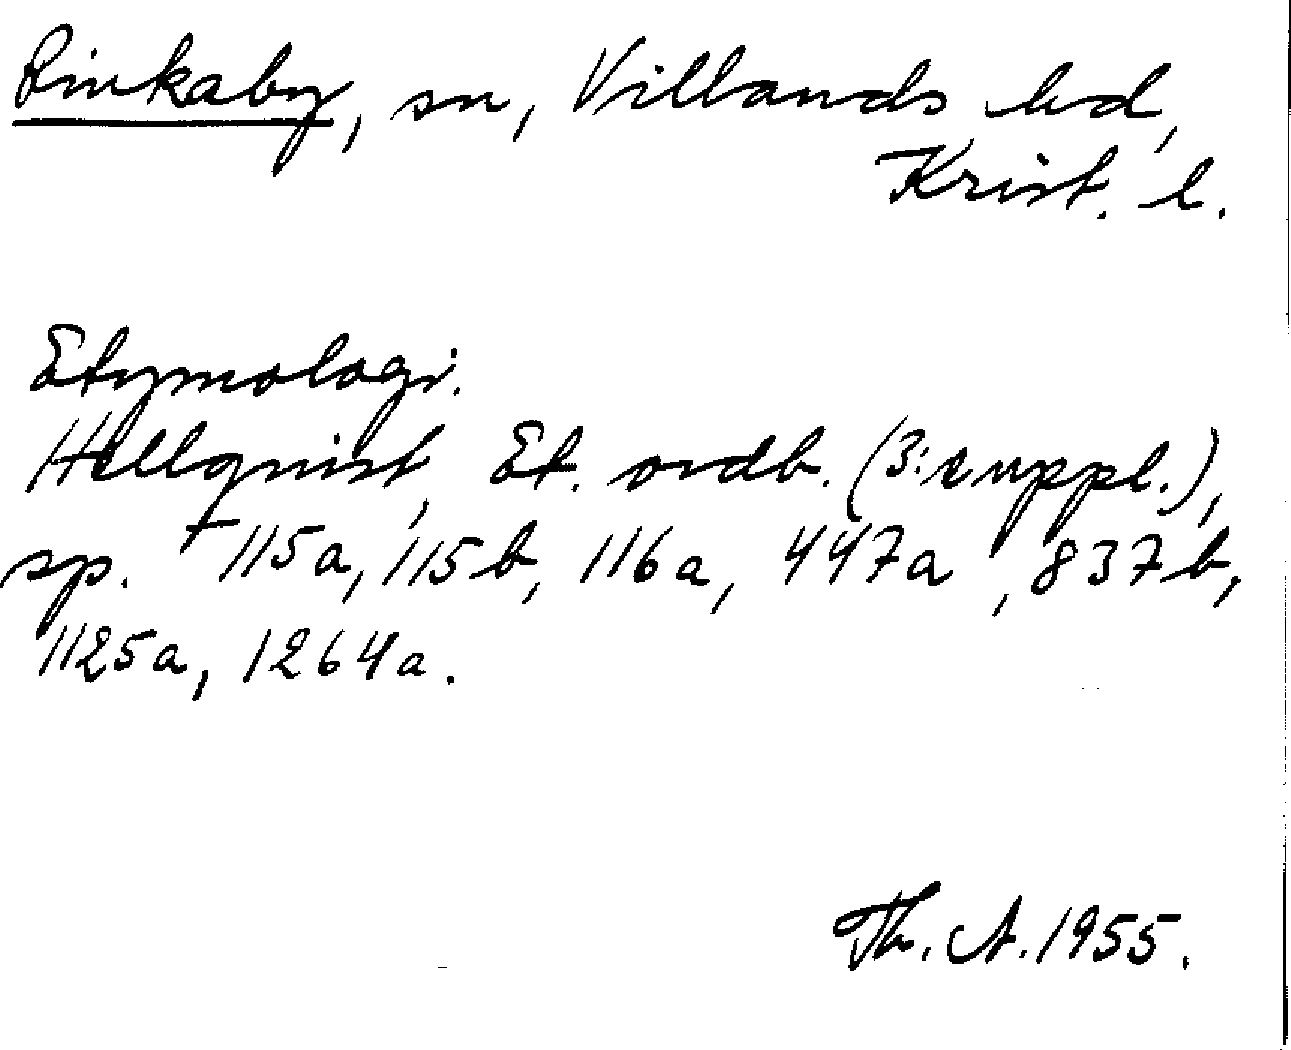 Rinkaby, sn, Villands hd,
Krist. l.
Etymologi.
Hellquist, Et. ordb. (3:e uppl.),
sp. 115a, 115b, 116a, 447a, 837b,
1125a, 1264a.
Th. A. 1955.